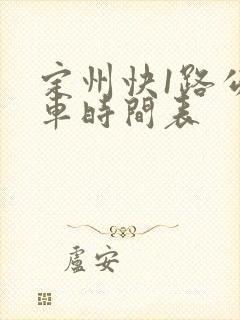 定州快1路公
車時間表
盧安